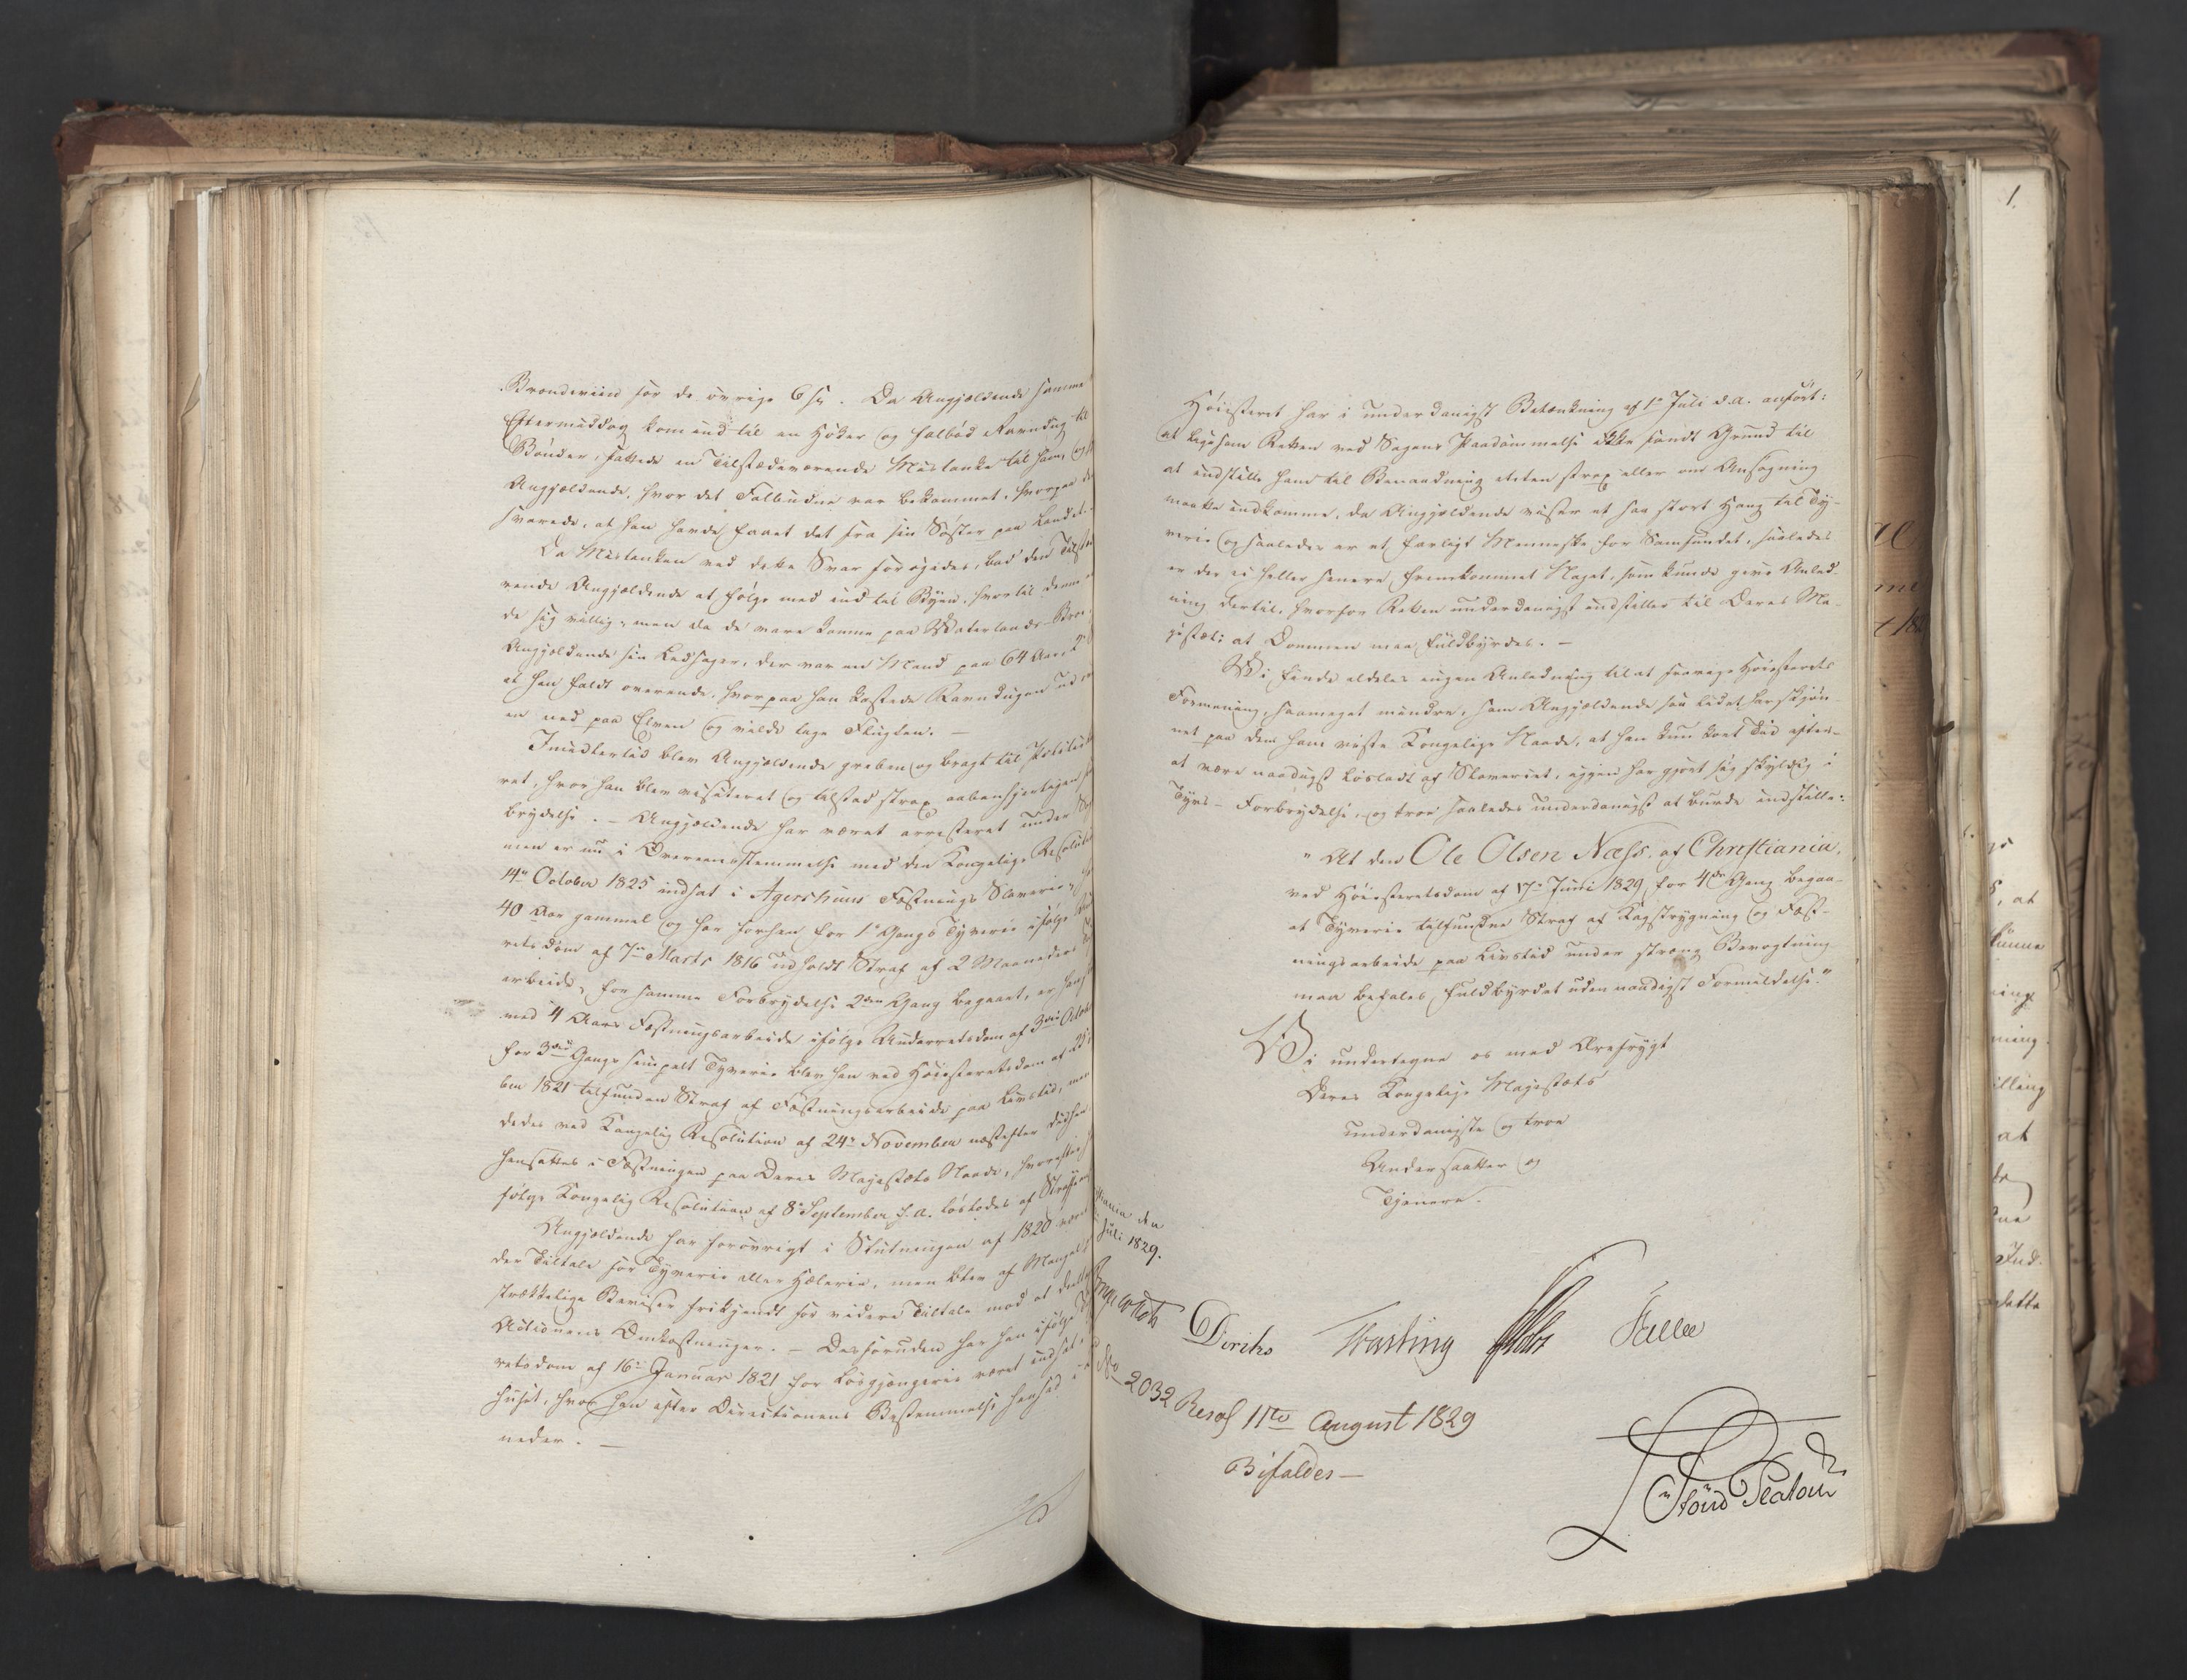 Brændeviin for de øvrige 6 s. Da Angjældende samme
Eftermiddag kom ind til en Høker og falbød Ravndug til
Bönder, fattede en Tilstædeværende Mistanke til ham, og
Angjældende, hvor det Falbudne var bekommet, hvorpaa
svarede, at han havde faaet det fra sin Søster paa Landet.
Da Mistanken ved dette Svar forøgedes, bad den
rende Angjældende at følge med ind til Byen, hvortil denne
de sig villig, men da de vare komne paa Waterlands-Bro
Angjældende sin Ledsager, der var en Mand paa 64 Aar
at han faldt overende, hvorpaa han kastede Ravndugen ud
en ned paa Elven og vilde tage Flugten. —
Imidlertid blev Angjældende greben og bragt til Politi
ret, hvor han blev visiteret og tilstod strax aabenhjertigen
brydelse. — Angjældende har været arresteret under
men er nu i Overeensstemmelse med den Kongelige Resolution
14de October 1825 indsat i Agershuus Fæstnings Slaverie,
40 Aar gammel og har forhen for 1e Gangs Tyverie ifølge
retsdom af 7de Marts 1816 udholdt Straf af 2 Maaneders
arbeide, for samme Forbrydelse 2den Gang begaaet, er han
med 4 Aars Fæstningsarbeide ifølge Underretsdom af 3die
for 3die Gangs simpelt Tyverie blev han ved Høiesteretsdom af 25
ber 1821 tilfunden Straf af Fæstningsarbeide paa Livstid, men
dedes ved Kongelig Resolution af 24de November næstefter
hensattes i Fæstningen paa Deres Majestæts Naade, hvorefter
følge Kongelig Resolution af 8de September f. A. løslodes af Straffen
Angjældende har forøvrigt i Slutningen af 1820 været
der Tiltale for Tyverie eller Hælerie, men blev af Mangel
strækkelige Beviser frikjendt for videre Tiltale mod at
Actionens Omkostninger. — Desforuden har han ifølge
retsdom af 16de Januar 1821 for Løsgjængerie været indsat
huset, hvor han efter Directionens Bestemmelse hensad
neder. —
Høiesteret har i underdanigst Betænkning af 1e Juli d. A. anført:
at ligesom Retten ved Sagens Paadømmelse ikke fandt Grund til
at indstille ham til Benaadning enten strax eller om Ansøgning
maatte indkomme, da Angjældende viser et saa stort Hang til Ty-
verie og saaledes er et farligt Menneske for Samfundet, saaledes
er der ei heller senere fremkommet Noget, som kunde give Anled-
ning dertil, hvorfor Retten underdanigst indstiller til Deres Ma-
jestæt: at Dommen maa fuldbyrdes. —
Wi finde aldeles ingen Anledning til at fravige Høiesterets
Formening, saameget mindre, som Angjældende saa lidet har skjøn-
net paa den ham viste Kongelige Naade, at han kun kort Tid efter
at være naadigst løsladt af Slaveriet, igjen har gjort sig skyldig i
Tyvs-Forbrydelse, og troe saaledes underdanigst at burde indstille:
"At den Ole Olsen Næss, af Christiania,
ved Høiesteretsdom af 17de Juni 1829 for 4de Gang begaa-
et Tyverie tilfundne Straf af Kagstrygning og Fæst-
ningsarbeide paa Livstid under streng Bevogtning
maa befales fuldbyrdet uden naadigst Formildelse."
Wi undertegne os med Ærefrygt
Deres Kongelige Majestæts
underdanigste og troe
Undersaatter og
Tjenere.
den
Juli 1829.
Diriks
No 2032 Resol 11te August 1829
Bifaldes —